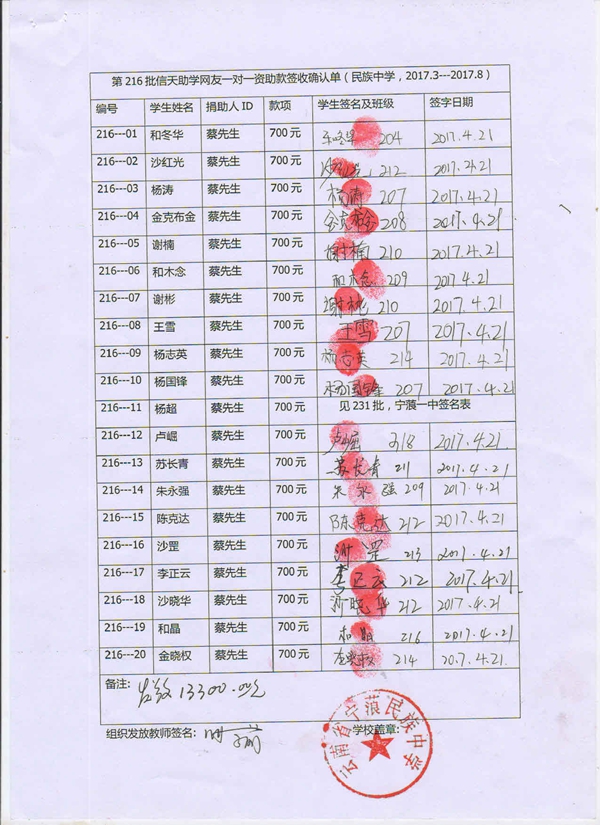 第 216 批信天助学网友一对一资助款签收确认单（民族中学，2017.3---2017.8）
编号 学生姓名 捐助人 ID 款项 学生签名及班级 签字日期
216---01 和冬华 蔡先生 700 元 和冬华 204 2017.4.21
216---02 沙红光 蔡先生 700 元 沙红光 212 2017.4.21
216---03 杨涛 蔡先生 700 元 杨涛 207 2017.4.21
216---04 金克布金 蔡先生 700 元 金克布金 208 2017.4.21
216---05 谢楠 蔡先生 700 元 谢楠 210 2017.4.21
216---06 和木念 蔡先生 700 元 和木念 209 2017.4.21
216---07 谢彬 蔡先生 700 元 谢彬 210 2017.4.21
216---08 王雪 蔡先生 700 元 王雪 207 2017.4.21
216---09 杨志英 蔡先生 700 元 杨志英 214 2017.4.21
216---10 杨国锋 蔡先生 700 元 杨国锋 207 2017.4.21
216---11 杨超 蔡先生 700 元 见 231 批，宁蒗一中签名表
216---12 卢崛 蔡先生 700 元 卢崛 218 2017.4.21
216---13 苏长青 蔡先生 700 元 苏长青 211 2017.4.21
216---14 朱永强 蔡先生 700 元 朱永强 209 2017.4.21
216---15 陈克达 蔡先生 700 元 陈克达 212 2017.4.21
216---16 沙罡 蔡先生 700 元 沙罡 213 2017.4.21
216---17 李正云 蔡先生 700 元 李正云 212 2017.4.21
216---18 沙晓华 蔡先生 700 元 沙晓华 212 2017.4.21
216---19 和晶 蔡先生 700 元 和晶 216 2017.4.21
216---20 金晓权 蔡先生 700 元 金晓权 214 2017.4.21
备注： 发放 13300.00元
组织发放教师签名： 学校盖章：
云南省宁蒗民族中学